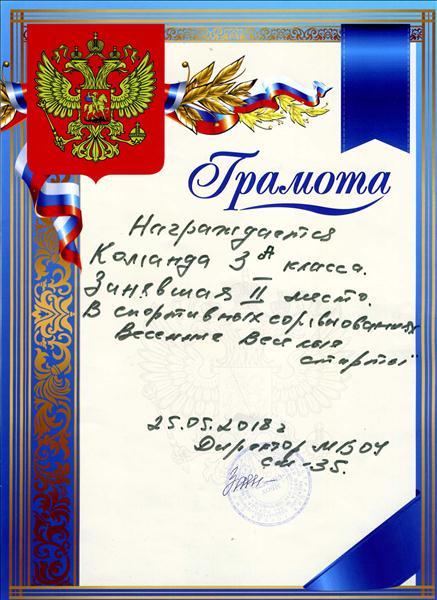 Грамота
Награждается
Команда 3 А класса.
Занявшая II место.
В спортивных соревнованиях
Веселые
старты"
25.05.2018г
Директор МБОУ
СШ-35.